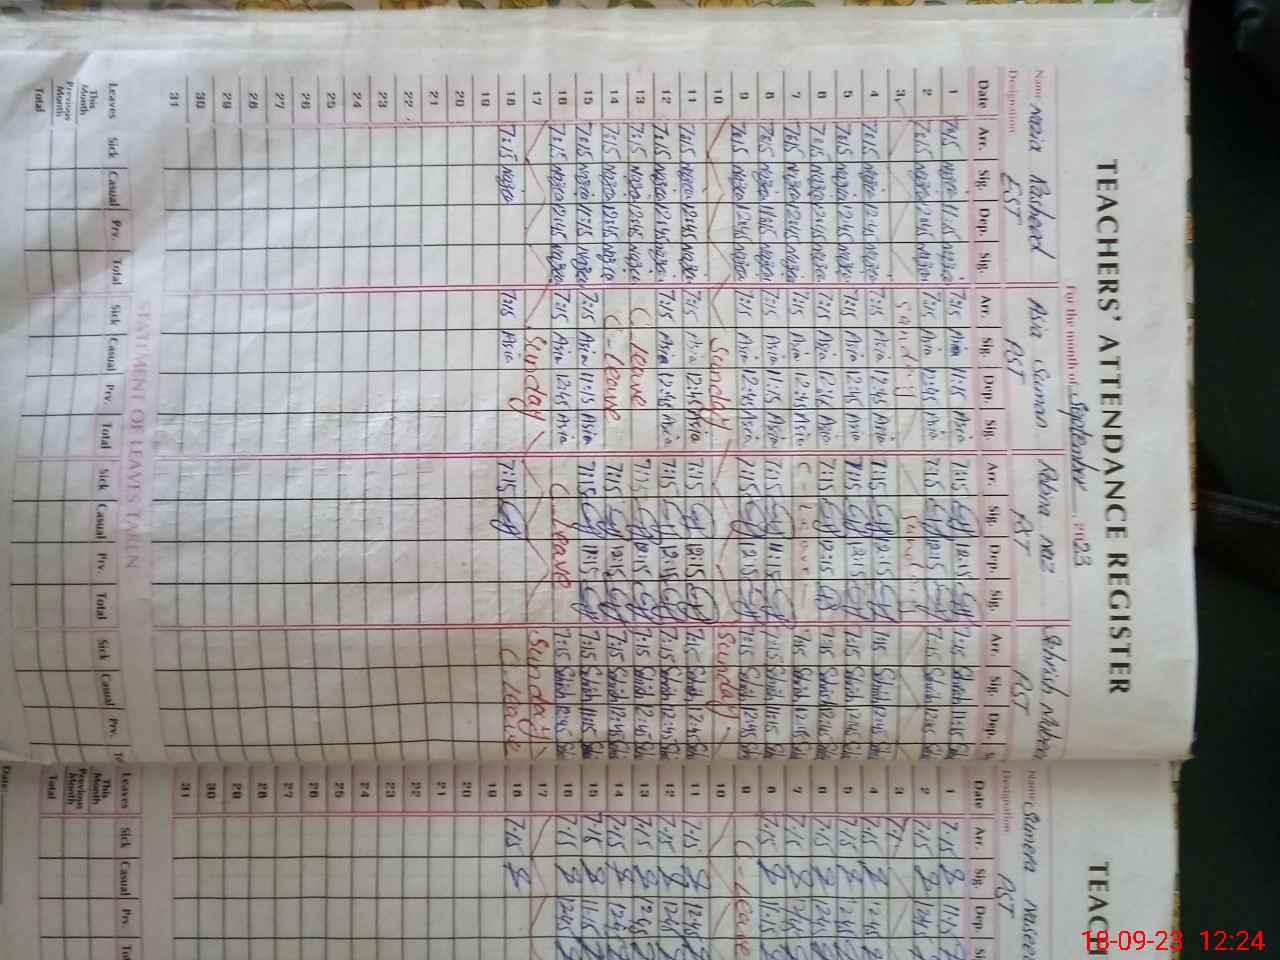 TEACHERS' ATTENDANCE REGISTER
For the month of September 2023
Name Nazia Rasheed Asia Suman Robina Naz Sehrish
Designation EST PST PST PST
Date Arr. Sig. Dep. Sig. Arr. Sig. Dep. Sig. Arr. Sig. Dep. Sig. Arr. Sig. Dep.
1 7:15 Nazia 11:15 Nazia 7:15 Asia 11:15 Asia 7:15 7:15 Sehrish 11:15
2 7:15 Nazia 12:45 Nazia 7:15 Asia 12:45 Asia 7:15 12:15 7:15 Sehrish 12:45
3 Sunday Sunday
4 7:15 Nazia 12:45 Nazia 7:15 Asia 12:45 Asia 7:15 12:15 7:15 Sehrish 12:45
5 7:15 Nazia 12:45 Nazia 7:15 Asia 12:45 Asia 7:15 12:15 7:15 Sehrish 12:45
6 7:15 Nazia 12:45 Nazia 7:15 Asia 12:45 Asia 7:15 12:15 7:15 Sehrish 12:45
7 7:15 Nazia 12:45 Nazia 7:15 Asia 12:45 Asia C-Leave 7:15 Sehrish 12:45
8 7:15 Nazia 11:15 Nazia 7:15 Asia 11:15 Asia 7:15 11:15 7:15 Sehrish 11:15
9 7:15 Nazia 12:45 Nazia 7:15 Asia 12:45 Asia 7:15 12:15 7:15 Sehrish 12:45
10 Sunday Sunday
11 7:15 Nazia 12:45 Nazia 7:15 Asia 12:45 Asia 7:15 12:15 7:15 Sehrish 12:45
12 7:15 Nazia 12:45 Nazia 7:15 Asia 12:45 Asia 7:15 12:15 7:15 Sehrish 12:45
13 7:15 Nazia 12:45 Nazia C Leave 7:15 12:15 7:15 Sehrish 12:45
14 7:15 Nazia 12:45 Nazia C-Leave 7:15 12:15 7:15 Sehrish 12:45
15 7:15 Nazia 11:15 Nazia 7:15 Asia 11:15 Asia 7:15 11:15 7:15 Sehrish 11:15
16 7:15 Nazia 12:45 Nazia 7:15 Asia 12:45 Asia C Leave 7:15 Sehrish 12:45
17 Sunday Sunday
18 7:15 Nazia 7:15 Asia 7:15 C Leave
19
20
21
22
23
24
25
26
27
28
29
30
31
STATMENT OF LEAVES TAKEN
Leaves Sick Casual Prv. Total Sick Casual Prv. Total Sick Casual Prv. Total Sick Casual Prv.
This Month
Previous Month
Total
TEAC
Name Sumera
Designation PST
Date Arr. Sig. Dep.
1 7:15 11:15
2 7:15 12:45
3
4 7:15 12:45
5 7:15 12:45
6 7:15 12:45
7 7:15 12:45
8 7:15 11:15
9 C-Leave
10
11 7:15 12:45
12 7:15 12:45
13 7:15 12:45
14 7:15
15 7:15 11:15
16 7:15 12:45
17
18 7:15
19
20
21
22
23
24
25
26
27
28
29
30
31
Leaves Sick Casual Prv.
This Month
Previous Month
Total
Date:
18-09-23 12:24